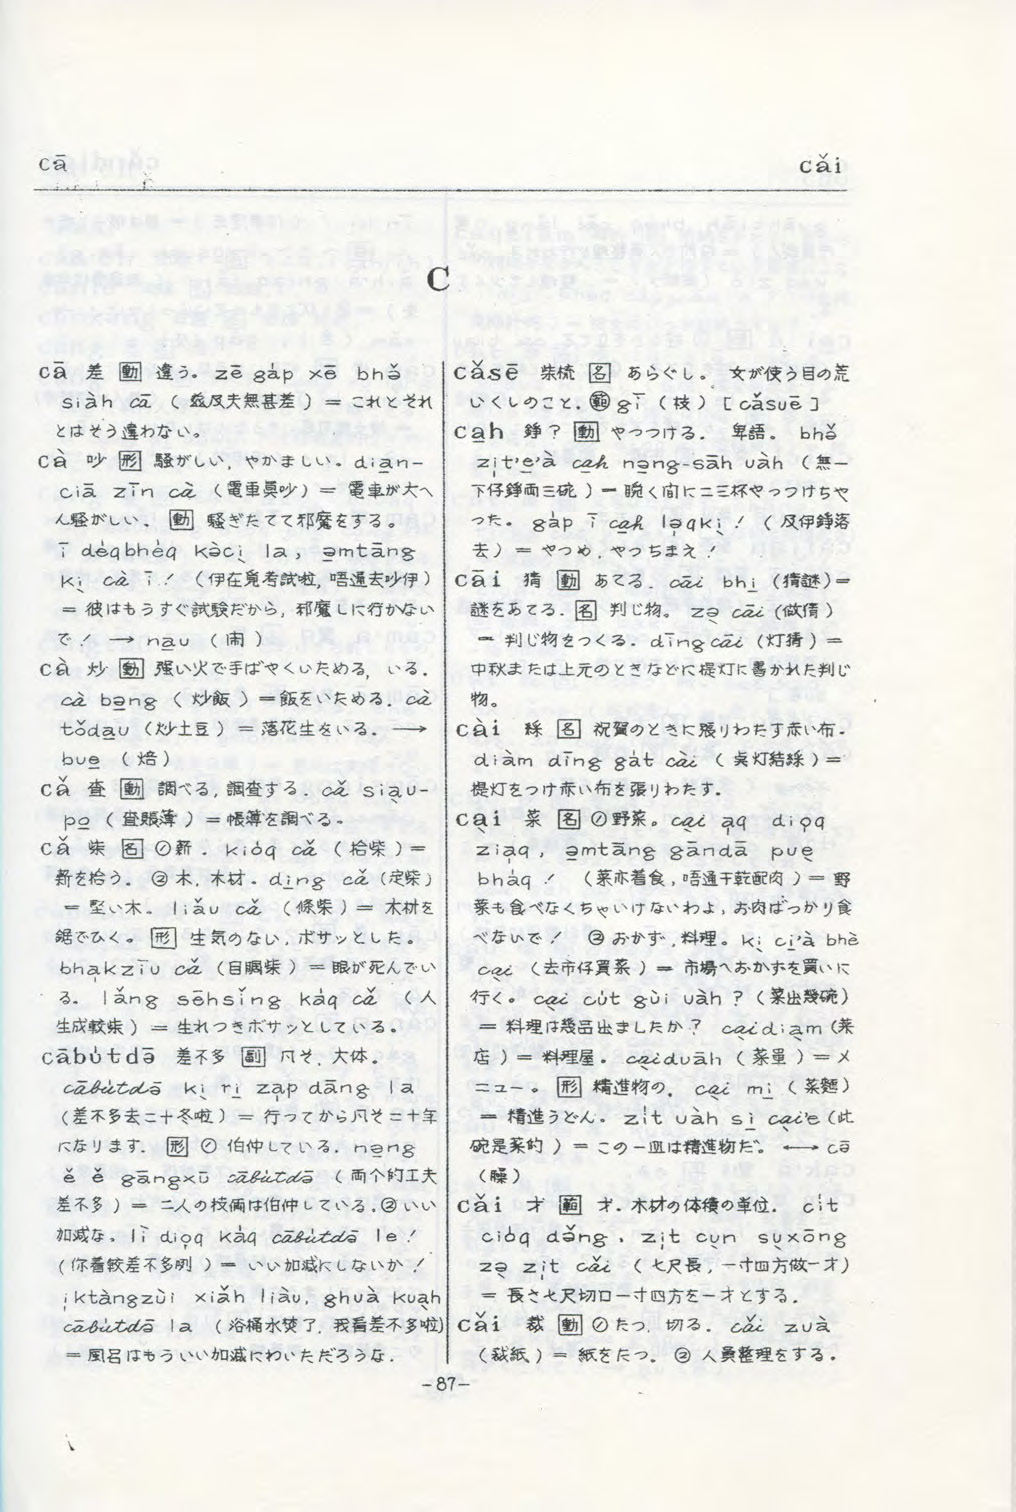 cā
cǎi
C
cā 差 動 違う。zē gáp xē bhə̌
siàh cā ( 兹及夫無甚差 ) = これとそれ
とはそう違わない。
cà 吵 形 騒がしい, やかましい。diàn-
ciā zīn cà ( 電車真吵 ) = 電車が大へ
ん騒がしい。動 騒ぎたてて邪魔をする。
ī déqbhéq kə̀ci̱ la, ə̱mtāng
ki̱ cà ī ! ( 伊在覓考試啦, 唔通去吵伊 )
= 彼はもうすぐ試験だから, 邪魔しに行かない
で! → na̱u ( 鬧 )
cà 炒 動 強い火で手ばやくいためる, いる.
cà bə̱ng ( 炒飯 ) = 飯をいためる. cà
tǒda̱u (炒土豆 ) = 落花生をいる. →
bue̱ ( 焙 )
cǎ 查 動 調べる, 調査する. cǎ sia̱u-
po̱ ( 查賬簿 ) = 帳簿を調べる。
cǎ 柴 名 ①薪 . kióq cǎ ( 拾柴 ) =
薪を拾う. ②木, 木材. di̱ng cǎ (定柴)
= 堅い木。liǎu cǎ ( 條柴 ) = 木材を
鋸でひく。形 生気のない, ボサッとした。
bha̱kzīu cǎ (目睭柴 ) = 眼が死んでい
る. lǎng sēhsǐng káq cǎ ( 人
生成較柴 ) = 生れつきボサッとしている。
cābútdə̄ 差不多 副 凡そ, 大体.
cābútdə̄ ki̱ ri̱ za̱p dāng la
(差不多去二十冬啦 ) = 行ってから凡そ二十年
になります. 形 ① 伯仲している. nə̱ng
ě ē gāngxū cābútdə̄ ( 両个的工夫
差不多 ) = 二人の技倆は伯仲している. ②いい
加減な. lǐ dio̱q káq cābútdə̄ le !
( 你着較差不多咧 ) = いい加減にしないか !
i̱ktàngzùi xiǎh liàu, ghuà kua̱h
cābútdə̄ la ( 浴桶水焚了, 我看差不多啦)
= 風呂はもういい加減にわいただろうな.
cǎsē 柴梳 名 あらぐし。女が使う目の荒
いくしのこと. 範 gī ( 枝 ) [ cǎsuē ]
ca̱h 錚 ? 動 やっつける. 卑語。bhə̌
zi̱t'e̱'à ca̱h nə̱ng-sāh uàh ( 無一
下仔錚両三碗 ) = 瞬く間に二三杯やっつけちゃ
った。gáp ī ca̱h lə̱qki̱ ! ( 及伊錚落
去) = やつめ, やっちまえ !
cāi 猜 動 あてる. cāi bhi̱ (猜謎) =
謎をあてる. 名 判じ物。zə̱ cāi (做猜 )
= 判じ物をつくる. dīngcāi (灯猜 ) =
中秋または上元のときなどに提灯に書かれた判じ
物。
cài 綵 名 祝賀のときに張りわたす赤い布.
diàm dīng gát cài ( 点灯結綵 ) =
提灯をつけ赤い布を張りわたす.
ca̱i 菜 名 ①野菜。ca̱i a̱q dio̱q
zia̱q , ə̱mtāng gāndā pue̱
bháq ! (菜亦着食, 唔通干乾配肉 ) = 野
菜も食べなくちゃいけないわよ, お肉ばっかり食
べないで ! ② おかず, 料理。ki̱ ci̱'à bhè
ca̱i ( 去市仔買菜 ) = 市場へおかずを買いに
行く。ca̱i cút gùi uàh ? ( 菜出幾碗)
= 料理は幾品出ましたか ? ca̱idia̱m (菜
店 ) = 料理屋。ca̱iduāh ( 菜單 ) = メ
ニュー。形 精進物の. ca̱i mi̱ ( 菜麵)
= 精進うどん。zi̱t uàh si̱ ca̱i'e (此
碗是菜的 ) = この一皿は精進物だ。←→ cə̄
( 臊)
cǎi 才 範 才. 木材の体積の単位. cít
cióq dǒng , zi̱t cu̱n su̱xōng
zə̱ zi̱t cǎi ( 七尺長, 一寸四方做一才)
= 長さ七尺切口一寸四方を一才とする.
cǎi 裁 動 ①たつ. 切る. cǎi zuà
( 裁紙 ) = 紙をたつ。② 人員整理をする.
-87-